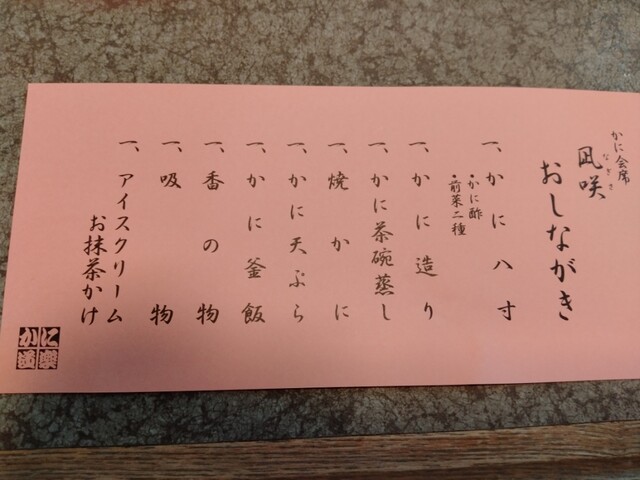 かに会席
凪咲
なぎさ
おしながき
一、かに八寸
・かに酢
・前菜二種
一、かに造り
一、かに茶碗蒸し
一、焼かに
一、かに天ぷら
一、かに釜飯
一、香の物
一、吸物
一、アイスクリーム
お抹茶かけ
かに道楽